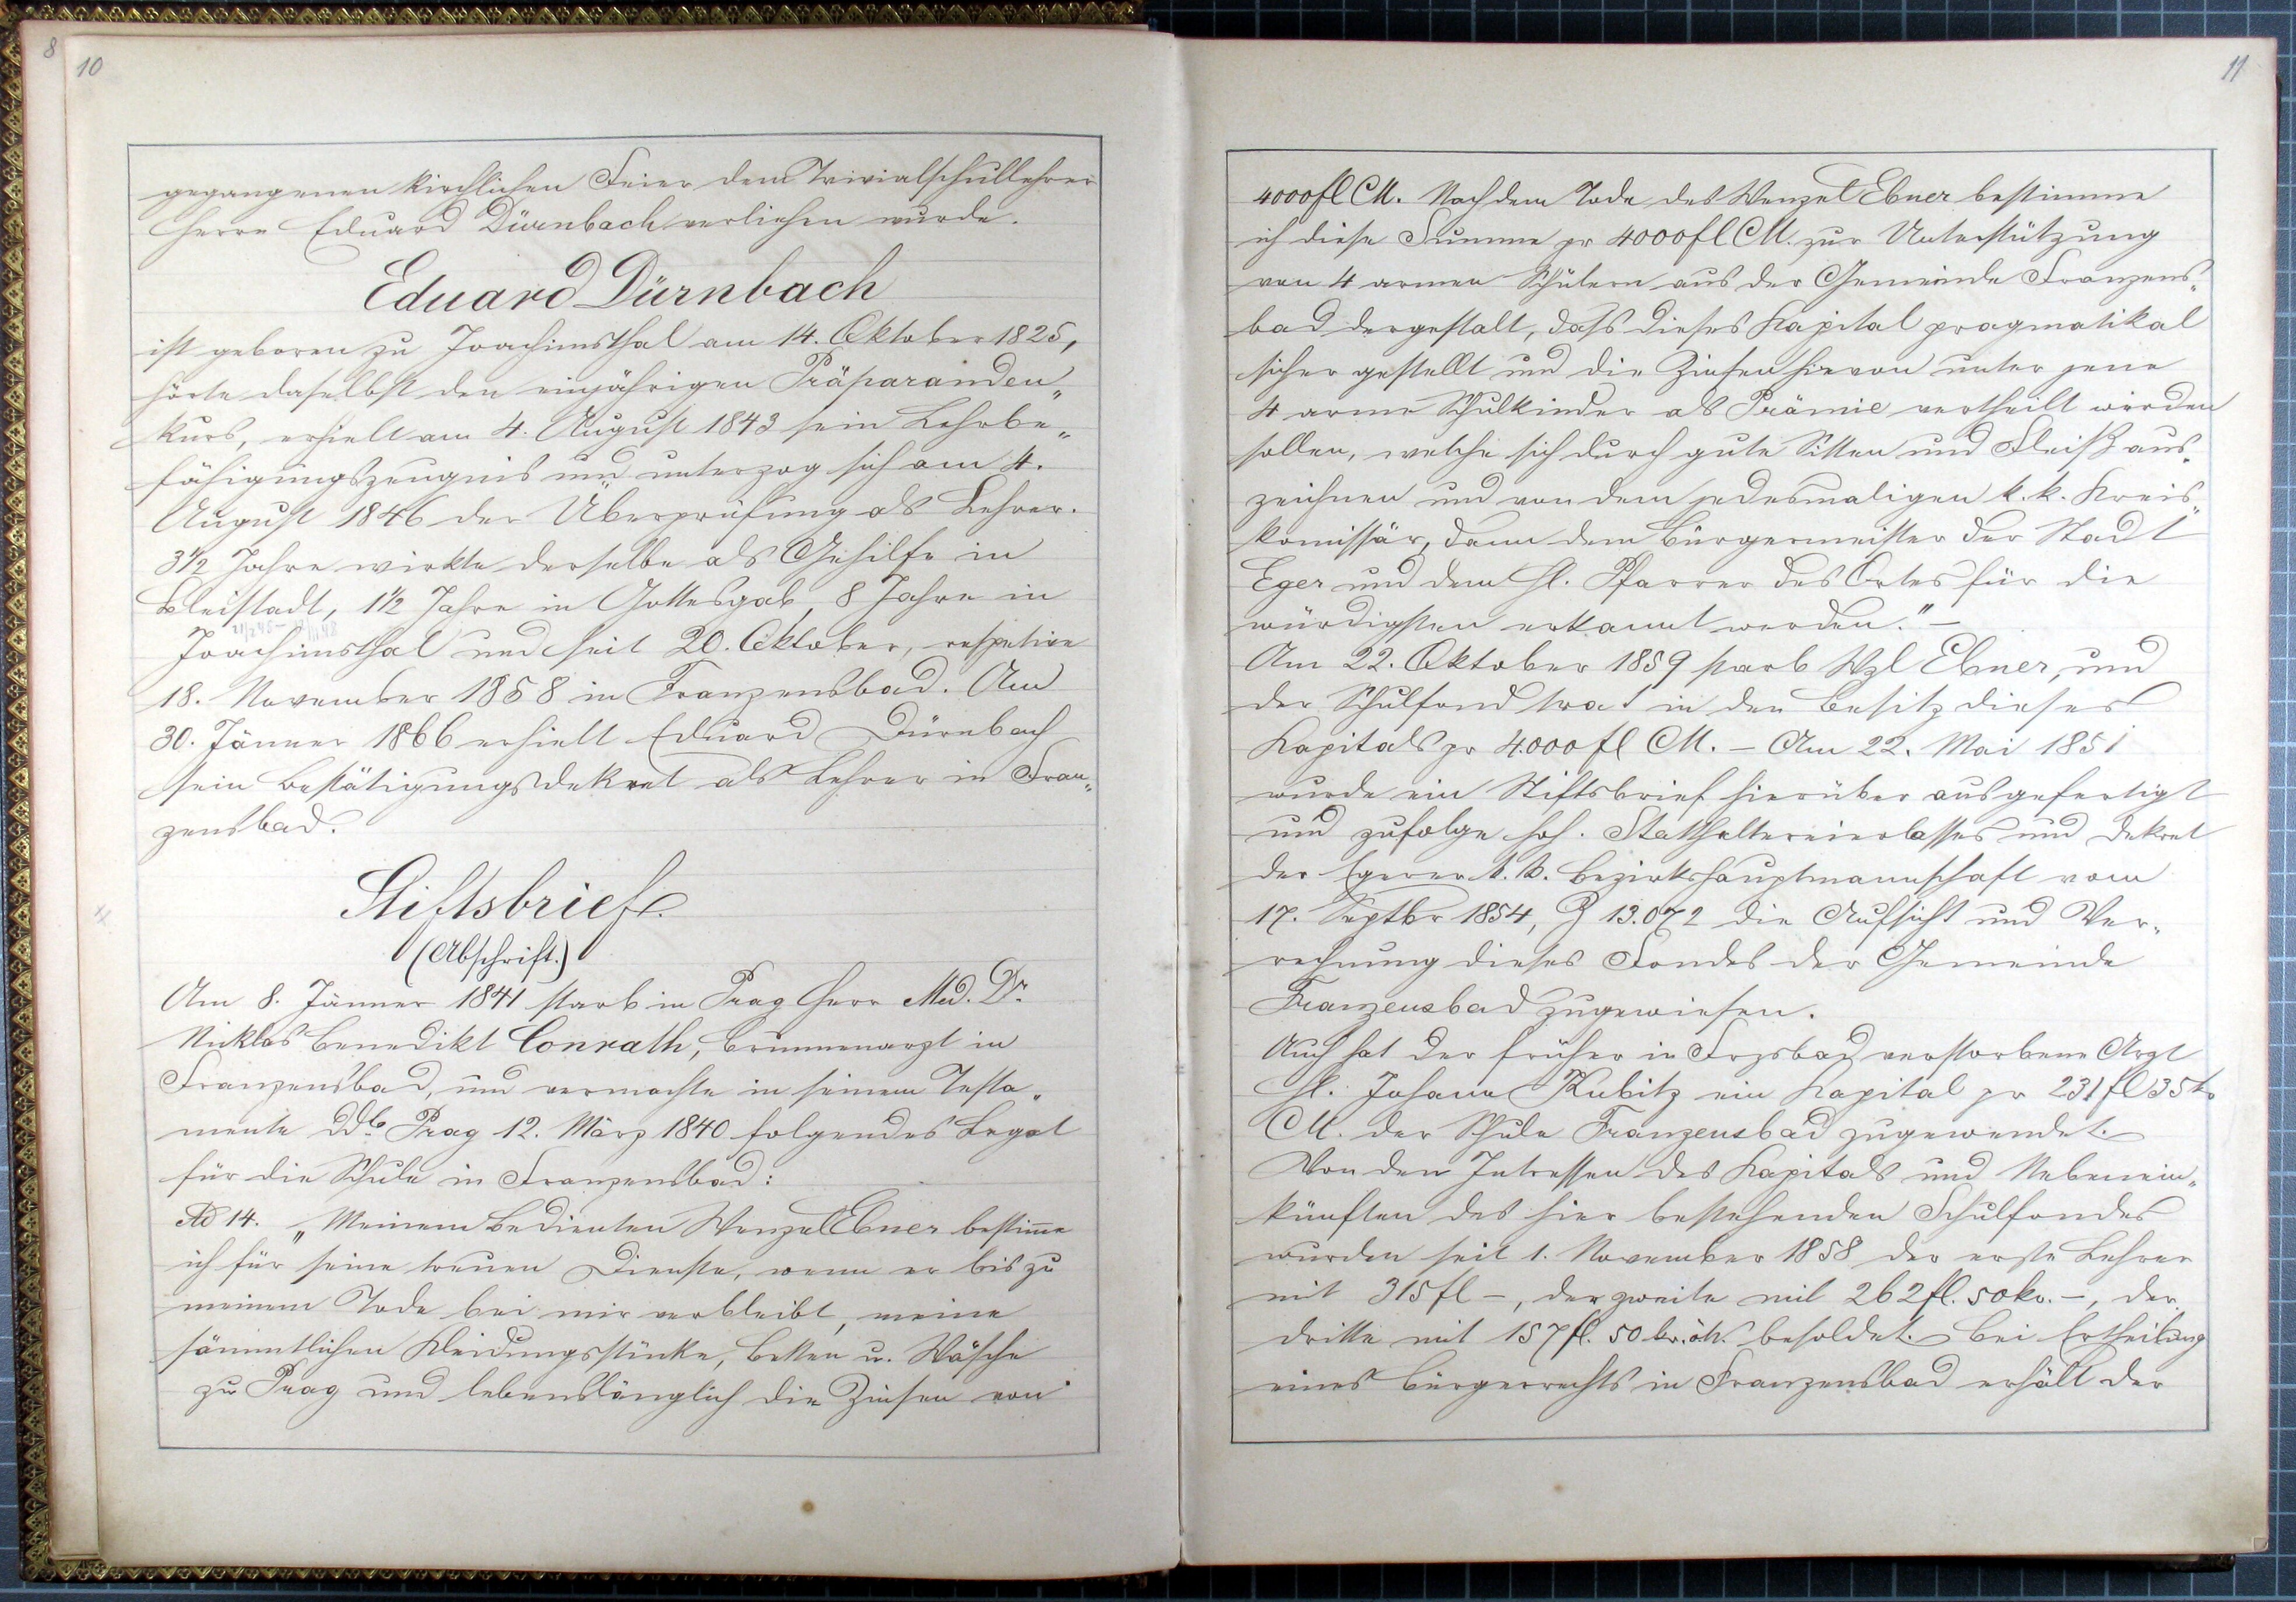 8
10
gegangenen kirchlichen Feier dem Trivialschullehrer
Herrn Eduard Dürnbach verliehen wurde.
Eduard Dürnbach
ist geboren zu Joachimsthal am 14. Oktober 1825,
hörte daselbst den einjährigen Präparanden„
kurs, erhielt am 4. August 1843 sein Lehrbe„
fähigungszeugnis und unterzog sich am 4.
August 1846 der Überprüfung als Lehrer.
3½ Jahre wirkte derselbe als Gehilfe in
Bleistadt, 1½ Jahre in Gottesgab, 8 Jahre in
Joachimsthal und seit 20. Oktober, respetive
18. November 1858 in Franzensbad. Am
30. Jänner 1866 erhielt Eduard Dürnbach
sein Bestätigungsdekret als Lehrer in Fran„
zensbad.
Stiftsbrief.
(Abschrift.)
Am 8. Jänner 1841 starb in Prag Herr Med. Dr.
Niklas Benedikt Conrath, Brunnenarzt in
Franzensbad, und vermachte in seinem Testa„
mente Ddto Prag 12. März 1840 folgendes Legat
für die Schule in Franzensbad:
Ad 14. „Meinem Bedienten Wenzel Ebner bestim̄e
ich für seine treuen Dienste, wenn er bis zu
meinem Tode bei mir verbleibt, meine
sämmtlichen Kleidungsstücke, Betten u. Wäsche
zu Prag und lebenslänglich die Zinsen von
11
4000 fl CM. Nach dem Tode des Wenzel Ebner bestimme
ich diese Summe pr 4000 fl CM. zur Unterstützung
von 4 armen Schülern aus der Gemeinde Franzens„
bad dergestalt, dass dieses Kapital pragmatikal
sicher gestellt und die Zinsen hievon unter jene
4 arme Schulkinder als Prämie vertheilt werden
sollen, welche sich durch gute Sitten und Fleiß aus„
zeichnen und von dem jedesmaligen k. k. Kreis„
komissär, dann dem Bürgermeister der Stadt
Eger und dem H. Pfarrer des Ortes für die
würdigsten erkannt werden." –
Am 22. Oktober 1859 starb Wzl Ebner, und
der Schulfond trat in den Besitz dieses
Kapitals pr 4.000 fl CM. – Am 22. Mai 1851
wurde ein Stiftsbrief hierüber ausgefertigt
und zufolge hoh. Statthaltereierlasses und Dekret
der Egerer k. k. Bezirkshauptmannschaft vom
17. Septbr 1854, Z 13.072 die Aufsicht und Ver„
rechnung dieses Fondes der Gemeinde
Franzensbad zugewiesen.
Auch hat der früher in Frzsbad verstorbene Arzt
H. Johann Kubitz ein Kapital pr 231 fl 35 kr
CM. der Schule Franzensbad zugewendet.
Von den Intressen des Kapitals und Nebenein„
künften des hier bestehenden Schulfondes
wurden seit 1. November 1858 der erste Lehrer
mit 315 fl –, der zweite mit 262 fl. 50 kr. –, der
dritte mit 157 fl. 50 kr. öW. besoldet. Bei Ertheilung
eines Bürgerrechts in Franzensbad erhält der